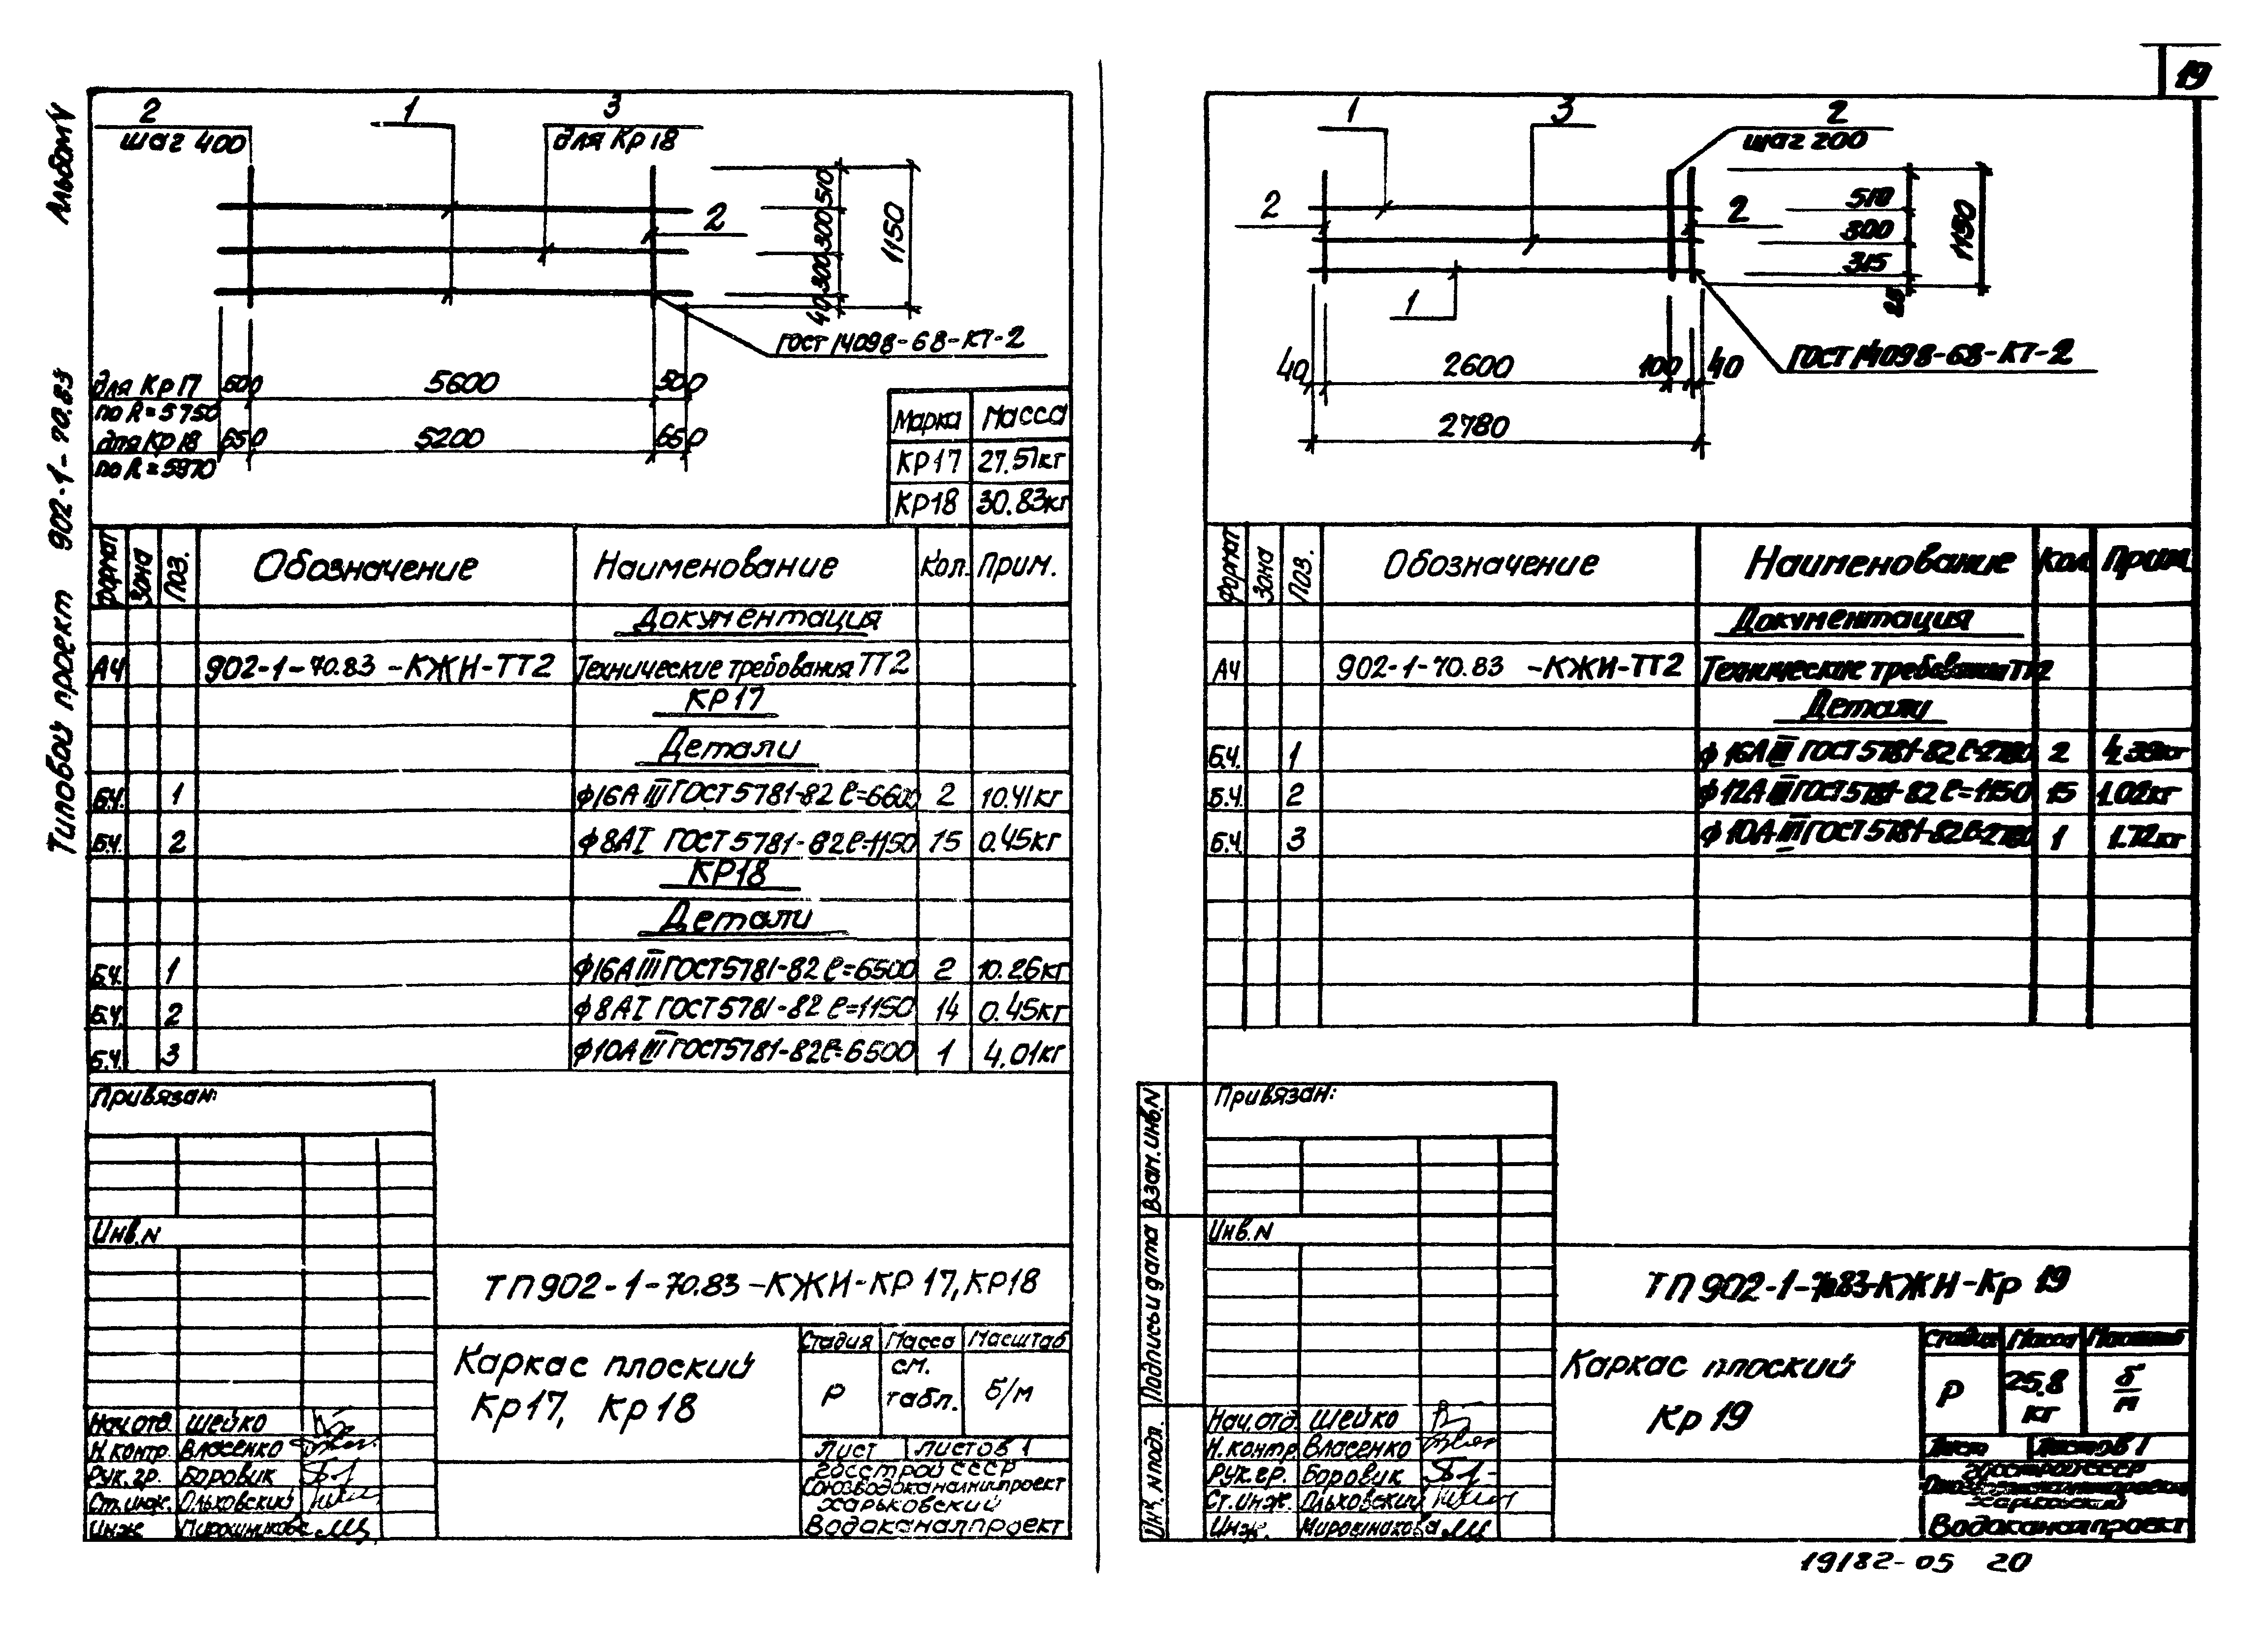 19
Альбом V
Типовой проект 902-1-70.83
2
шаг 400
1
3
для Кр 18
2
510
300
300
40
1150
ГОСТ 14098-68-КТ-2
для Кр 17 500 5600 500
по R=5750
для Кр 18 650 5200 650
по R=5970
Марка Масса
КР17 27.57кг
КР18 30.83кг
Формат Зона Поз. Обозначение Наименование Кол. Прим.
Документация
А4 902-1-70.83 -КЖИ-ТТ2 Технические требования ТТ2
КР17
Детали
Б.Ч. 1 ф16АIII ГОСТ 5781-82 ℓ=6600 2 10.41кг
Б.Ч. 2 ф8АI ГОСТ 5781-82 ℓ=1150 15 0.45кг
КР18
Детали
Б.Ч. 1 ф16АIII ГОСТ 5781-82 ℓ=6500 2 10.26кг
Б.Ч. 2 ф8АI ГОСТ 5781-82 ℓ=1150 14 0.45кг
Б.Ч. 3 ф10АIII ГОСТ 5781-82 ℓ=6500 1 4.01кг
Привязан:
Инв.N
ТП 902-1-70.83-КЖИ-КР 17, КР18
Каркас плоский
Кр17, Кр18
Стадия Масса Масштаб
Р см. табл. б/м
Лист Листов 1
Госстрой СССР
Союзводоканалниипроект
Харьковский
Водоканалпроект
Нач.отд. Шейко
Н.контр. Власенко
Рук.гр. Боровик
Ст.инж. Ольховский
Инж.
1
3
2
шаг 200
2
2
1
510
300
315
25
1150
ГОСТ 14098-68-КТ-2
40 2600 100 40
2780
Формат Зона Поз. Обозначение Наименование Кол. Прим.
Документация
А4 902-1-70.83 -КЖИ-ТТ2 Технические требования ТТ2
Детали
Б.Ч. 1 ф16АIII ГОСТ 5781-82 ℓ=2780 2 4.39кг
Б.Ч. 2 ф12АIII ГОСТ 5781-82 ℓ=1150 15 1.02кг
Б.Ч. 3 ф10АIII ГОСТ 5781-82 ℓ=2780 1 1.72кг
Привязан:
Инв.N
Взам.инв.N
Подпись и дата
Инв. N подл.
ТП 902-1-70.83-КЖИ-Кр 19
Каркас плоский
Кр 19
Стадия Масса Масштаб
Р 25.8 кг б/м
Лист Листов 1
Госстрой СССР
Союзводоканалниипроект
Харьковский
Водоканалпроект
Нач.отд. Шейко
Н.контр. Власенко
Рук.гр. Боровик
Ст.инж. Ольховский
Инж.
19182-05 20